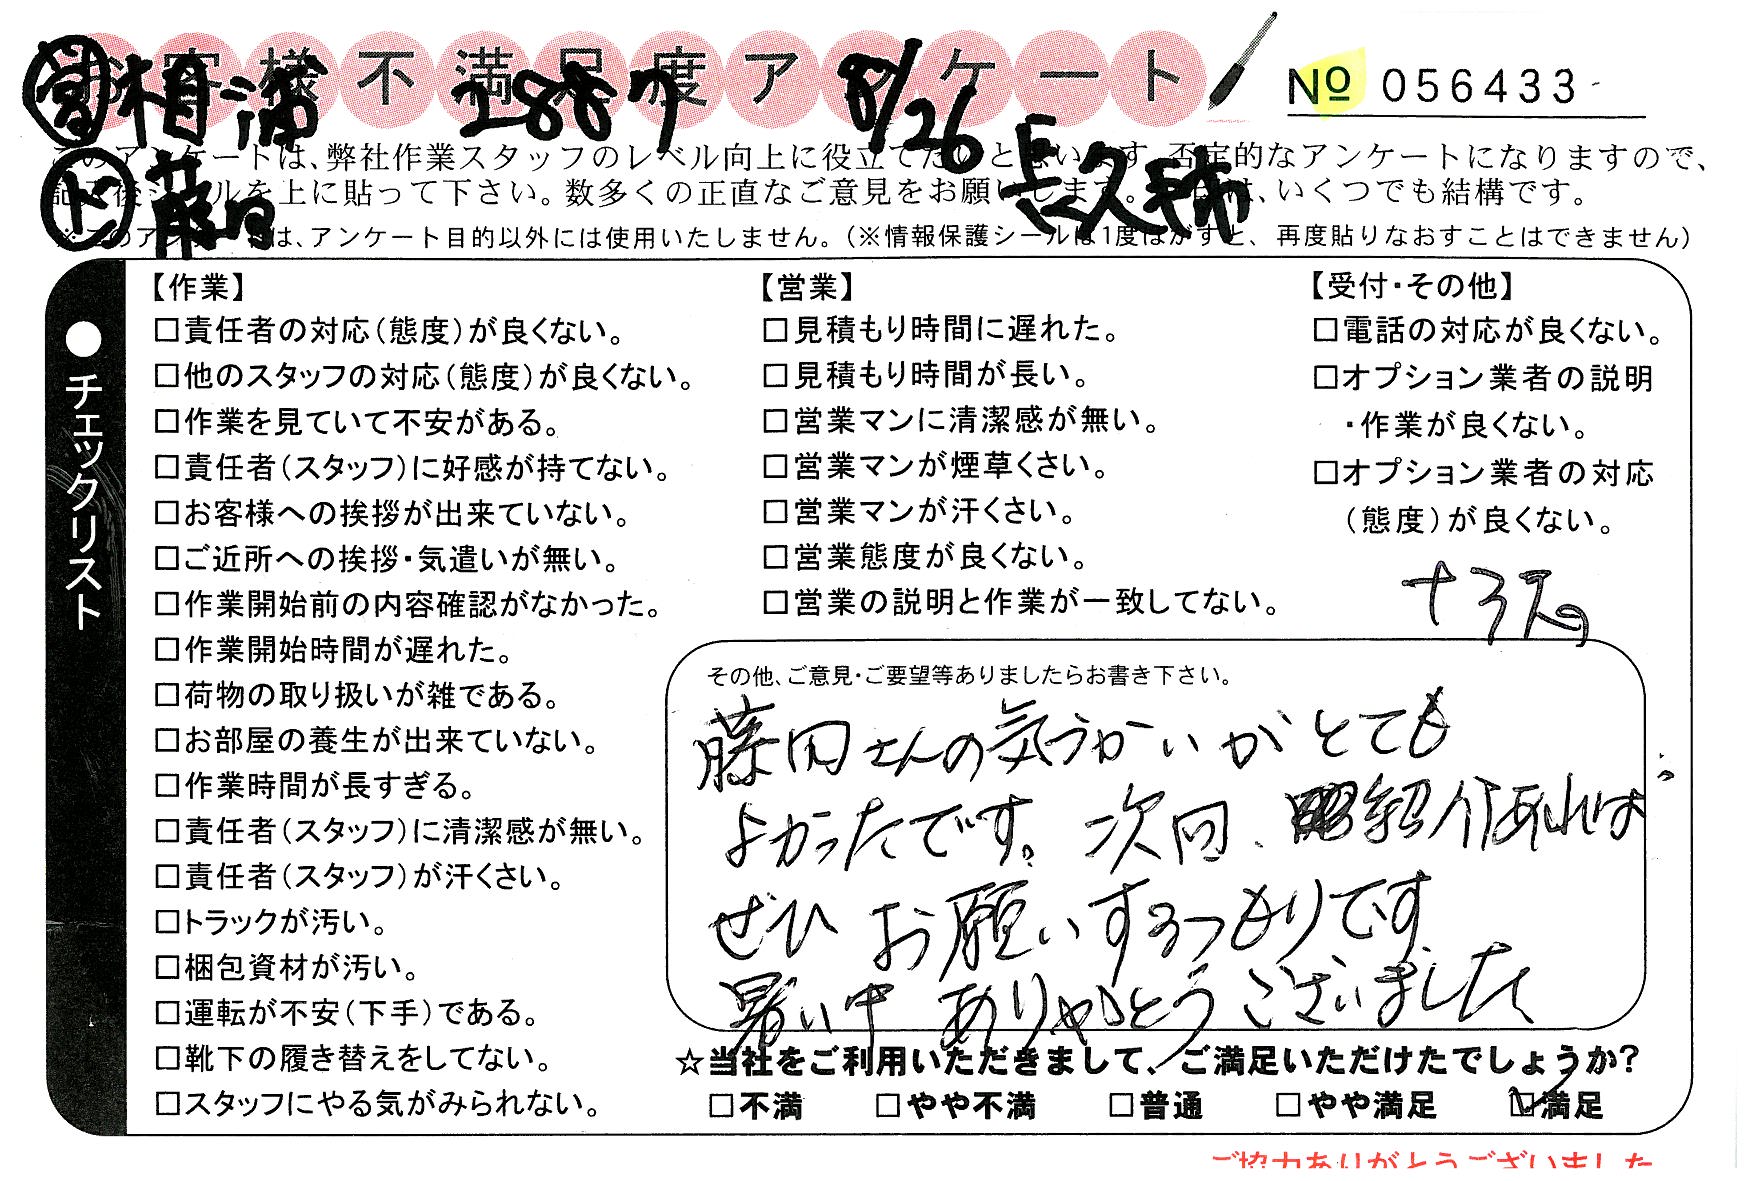 お客様不満足度アンケート
営 相浦 2887 8/26
№ 056433
このアンケートは、弊社作業スタッフのレベル向上に役立てたいと思います。否定的なアンケートになりますので、
記入後シールを上に貼って下さい。数多くの正直なご意見をお願いします。 は、いくつでも結構です。
ド 藤田 長久手市
※このアンケートは、アンケート目的以外には使用いたしません。(※情報保護シールは1度はがすと、再度貼りなおすことはできません)
●チェックリスト
【作業】
□責任者の対応(態度)が良くない。
□他のスタッフの対応(態度)が良くない。
□作業を見ていて不安がある。
□責任者(スタッフ)に好感が持てない。
□お客様への挨拶が出来ていない。
□ご近所への挨拶・気遣いが無い。
□作業開始前の内容確認がなかった。
□作業開始時間が遅れた。
□荷物の取り扱いが雑である。
□お部屋の養生が出来ていない。
□作業時間が長すぎる。
□責任者(スタッフ)に清潔感が無い。
□責任者(スタッフ)が汗くさい。
□トラックが汚い。
□梱包資材が汚い。
□運転が不安(下手)である。
□靴下の履き替えをしてない。
□スタッフにやる気がみられない。
【営業】
□見積もり時間に遅れた。
□見積もり時間が長い。
□営業マンに清潔感が無い。
□営業マンが煙草くさい。
□営業マンが汗くさい。
□営業態度が良くない。
□営業の説明と作業が一致してない。
【受付・その他】
□電話の対応が良くない。
□オプション業者の説明
・作業が良くない。
□オプション業者の対応
(態度)が良くない。
その他、ご意見・ご要望等ありましたらお書き下さい。
藤田さんの気づかいがとても
よかったです。次回、紹介あれば
ぜひ お願いするつもりです
暑い中 ありがとうございました
☆当社をご利用いただきまして、ご満足いただけたでしょうか?
□不満 □やや不満 □普通 □やや満足 ☑満足
ご協力ありがとうございました